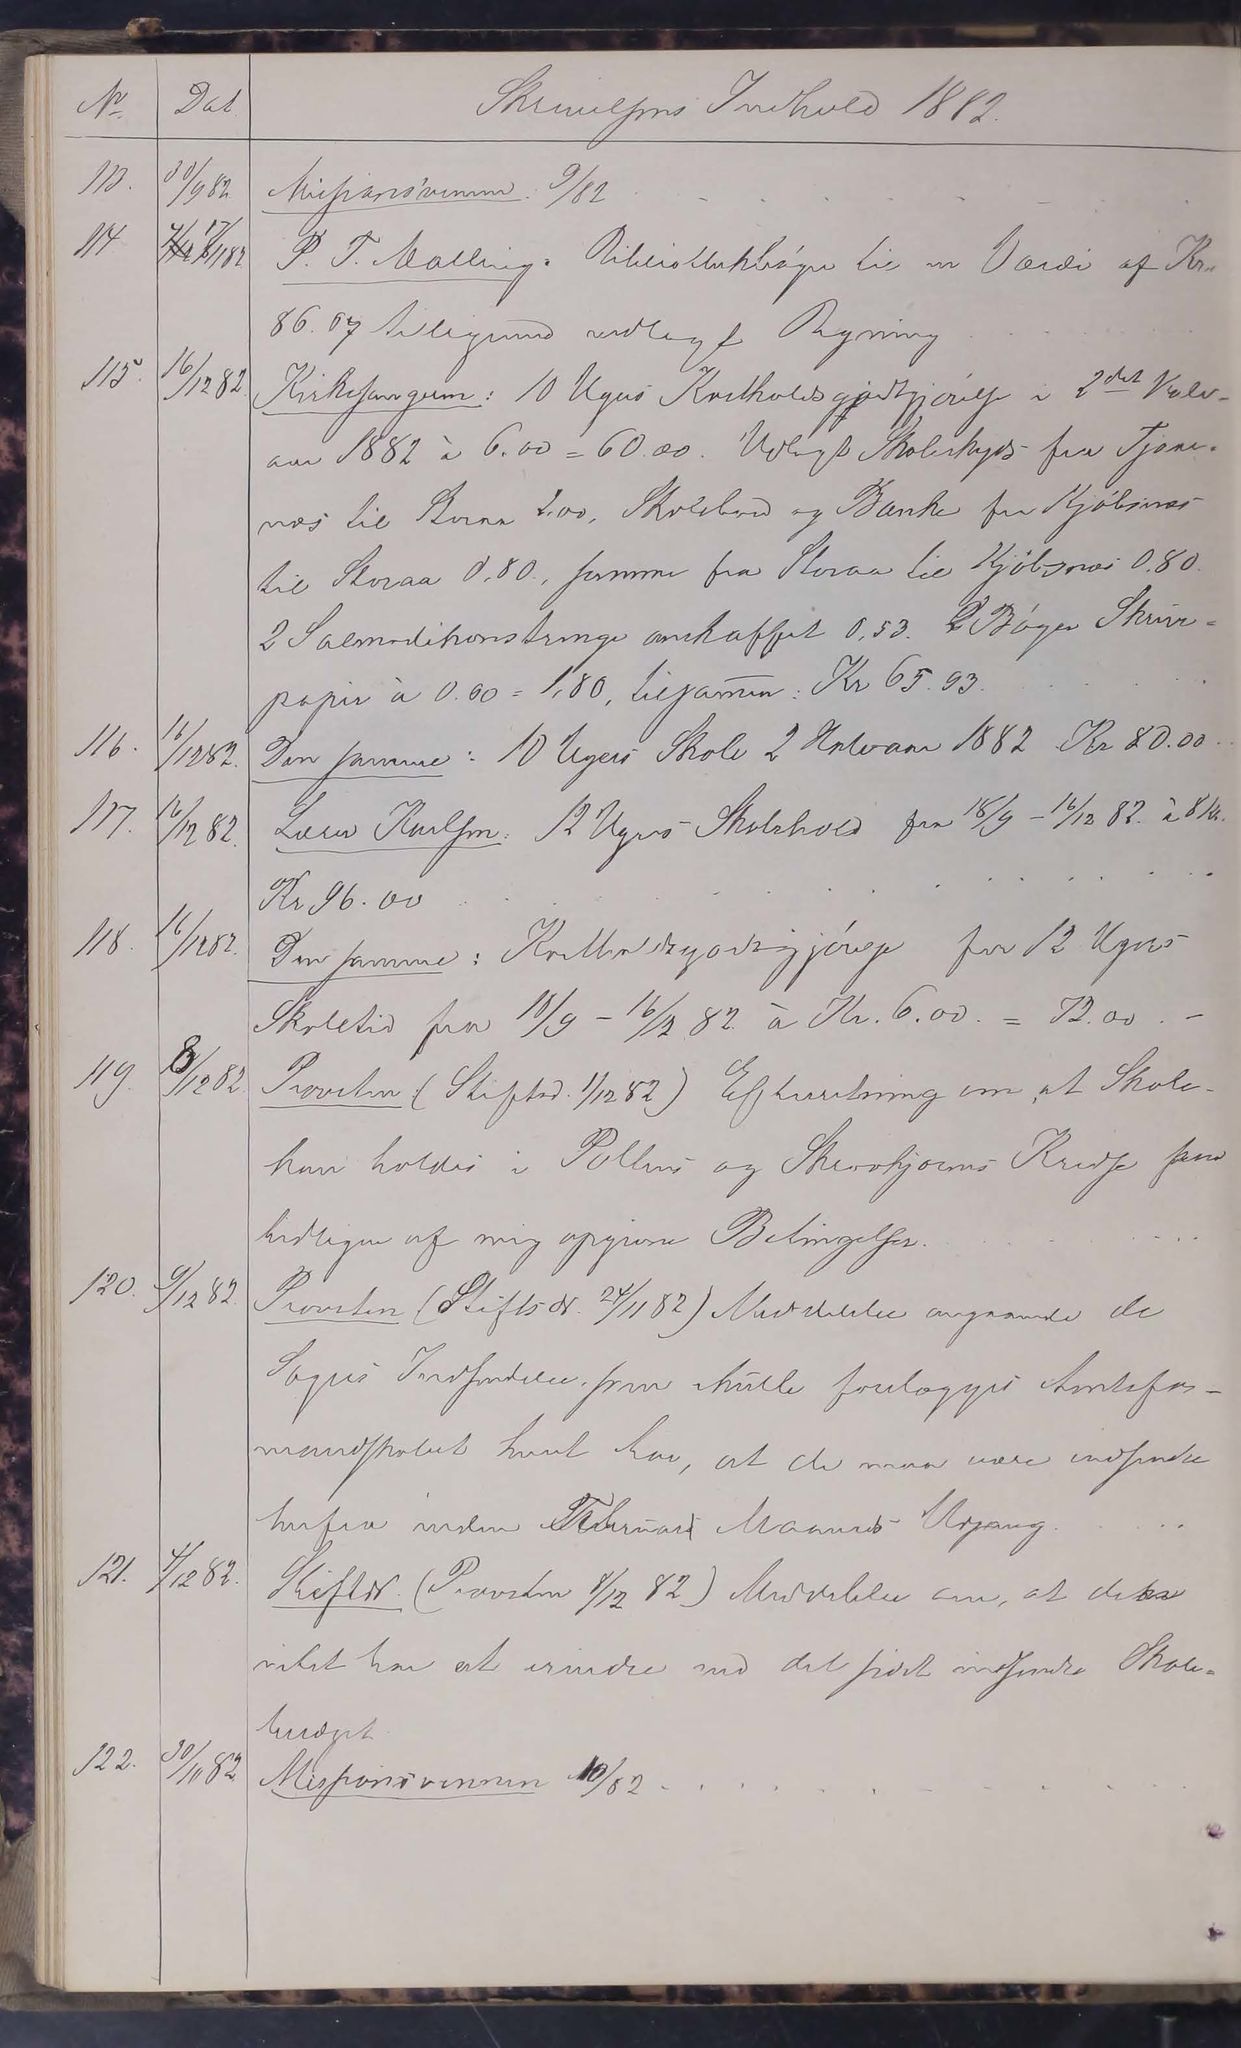 No. Dat Skrivelsens Indhold 1882.
113. 30/9 82 Missionsvennen. 9/82
114 17/11 82 P. T. Malling. Bibliothekbøger til en Værdi af Kr.
86.07 tilligemed vedlagt Regning
115. 16/12 82. Kirkesangeren: 10 Ugers Kostholdsgodtgjørelse i 2det Halv-
aar 1882 à 6.00 = 60.00. Udlagt Skoleskyds fra Tjone-
næs til Storaa 2.00, Skolebord og Bænke fra Kjøbsnæs
til Storaa 0,80., samme fra Storaa til Kjøbsnæs 0.80.
2 Salmodikonstrenge anskaffet 0,53. 2 Bøger Skriv-
papir à 0.90 = 1,80, tilsammen: Kr 65.93.
116. 16/12 82. Den samme: 10 Ugers Skole 2 Halvaar 1882 Kr 80.00
117. 16/12 82. Lærer Karlsen: 12 Ugers Skolehold fra 18/9 - 16/12 82. à 8 Kr.
Kr 96.00
118. 16/12 82. Den samme: Kostholdsgodtgjørelse for 12 Ugers
Skoletid fra 18/9 - 16/12 82 à Kr. 6.00. = 72.00. -
119. 8/12 82 Provsten (Stiftsd. 1/12 82) Efterretning om, at Skole
kan holdes i Pollens og Skrovkjosens Kreds paa
de af mig opgivne Betingelser.
120. 9/12 82. Provsten (Stiftsd. 24/11 82) Meddelelse angaaende de
Sagers Indsendelse, som skulle forelægges Amtsfor-
mandskabet hvert Aar, at de maa være indsendte
herfra inden Februar Maaneds Udgang.
121. 4/12 82. Stiftsd. (Provsten 8/12 82) Meddelelse om, at denne
intet har at erindre ved det sidst indsendte Skole-
budget.
122. 30/11 82 Missionsvennen 10/82